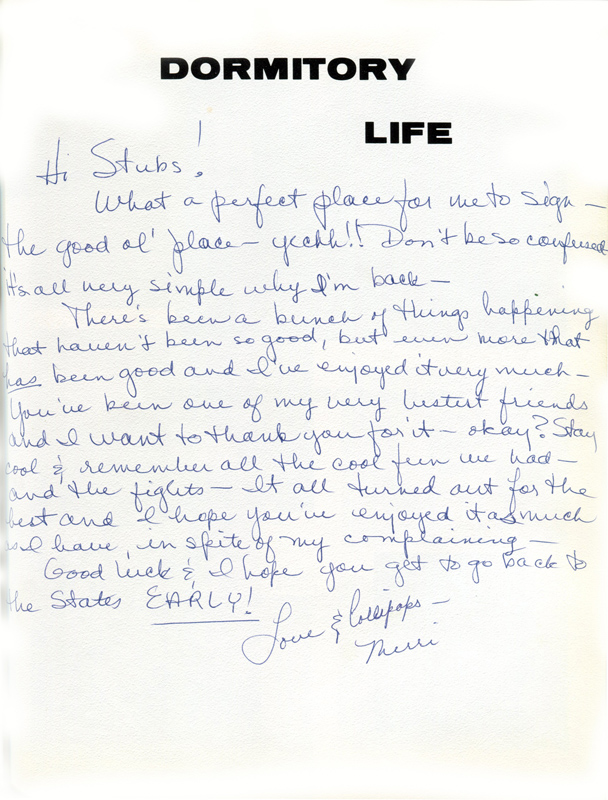 DORMITORY
LIFE
Hi Stubs!
What a perfect place for me to sign –
the good ol' place – yechh!! Don't be so confused
it's all very simple why I'm back –
There's been a bunch of things happening
that haven't been so good, but even more that
has been good and I've enjoyed it very much –
You've been one of my very bestest friends
and I want to thank you for it – okay? Stay
cool & remember all the cool fun we had –
and the fights – It all turned out for the
best and I hope you've enjoyed it as much
as I have, in spite of my complaining –
Good luck & I hope you get to go back to
the States EARLY!
Love & lollipops –
Merri